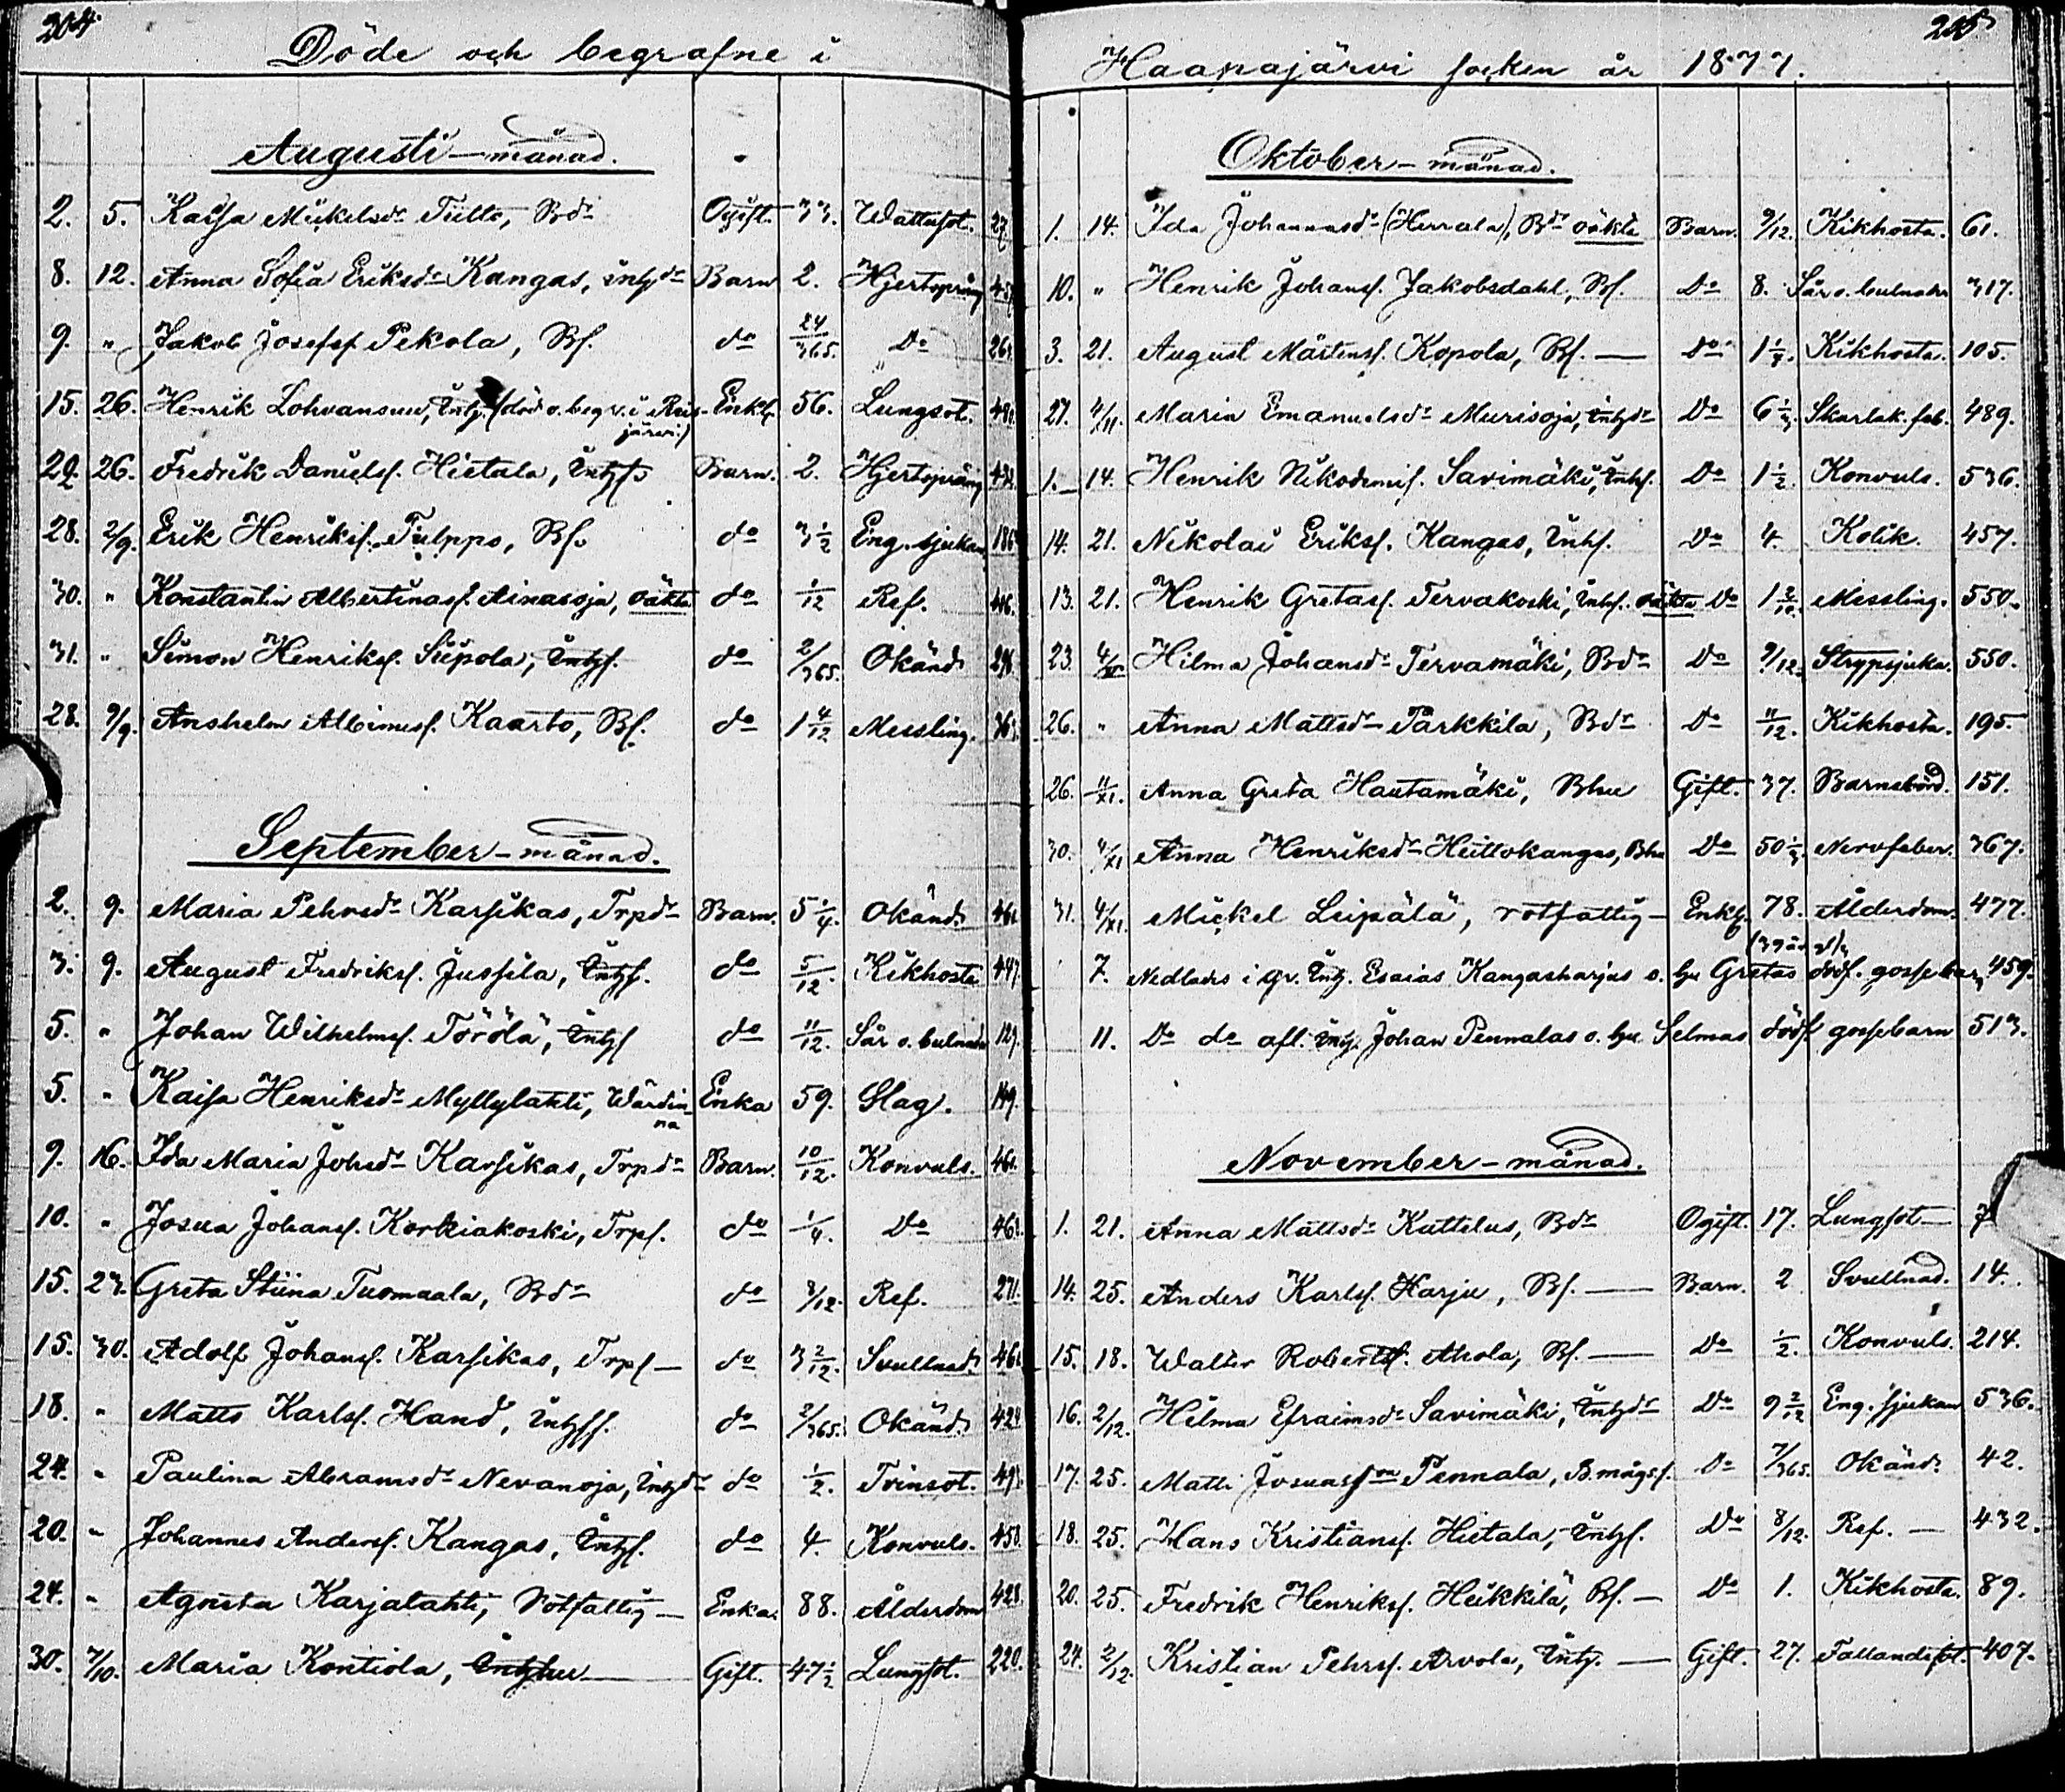 204.
Döde och begrafne i
Augusti-månad.
2. 5. Kaisa Mickelsdr Tilto, Bdr Ogift. 77. Wattusot. 27.
8. 12. Anna Sofia Eriksdr Kangas, inhdr Barn 2. Hjertsprång
9. " Jakob Josefsf. Pekola, Bf. do 24/365. Do
15. 26. Henrik Lohvansuu, Inh. (död o. begr. i Reis- Enkl. 56. Lungsot.
järvi)
22. 26. Fredrik Danielsf. Hietala, Inhf. Barn. 2. Hjertsprång
28. 2/9. Erik Henriksf. Fulppo, Bf. do 3 1/2 Eng. sjukan 186
30. " Konstantin Albertinasf. Ainassoja, oäkta do 1/12 Ref.
31. " Simon Henriksf. Siipola, Inhf. do 2/365. Okänd.
28. 9/9. Anshelm Albinusf. Kaarto, Bf. do 1 4/12 Messling.
September-månad.
2. 9. Maria Pehrsdr Karsikas, Trpdr Barn. 5 1/4. Okänd.
3. 9. August Fredriksf. Jussila, Inhf. do 5/12 Kikhosta 447.
5. " Johan Wilhelmsf. Törölä, Inhf do 11/12. Sår o. bulnader 127.
5. " Kaisa Henriksdr Myllylahti, Wärdin- Enka 59. Slag. 149.
na
9. 16. Ida Maria Johsdr Karsikas, Trpdr Barn. 10/12. Konvuls.
10. " Josua Johansf. Korkiakoski, Trpf. do 1/4. Do
15. 23. Greta Stiina Tuomaala, Bdr do 8/12. Ref. 271.
15. 30. Adolf Johansf. Karsikas, Trpf — do 3 2/12. Svullnad.
18. " Matts Karlsf. Hand, Inhff. do 2/365. Okänd.
24. " Paulina Abramsdr Nevanoja, Inhdr do 1/2. Tvinsot.
20. " Johannes Andersf. Kangas, Inhf. do 4. Konvuls. 458.
24. " Agneta Karjalahti, Rotfattig — Enka. 88. Ålderdom 428.
30. 7/10. Maria Kontiola, Inhhu — Gift. 47 1/2 Lungsot. 220.
205
Haapajärvi socken år 1877.
Oktober-månad.
1. 14. Ida Johannasdr (Herrala), Bdr oäkta Barn. 9/12. Kikhosta. 61.
10. " Henrik Johansf. Jakobsdahl, Bf. Do 8. Sår o. bulnader 317.
3. 21. August Mårtensf. Kopola, Bf. — Do 1 1/4. Kikhosta. 105.
27. 4/11. Maria Emanuelsdr Murisoja, Inhdr Do 6 1/2. Skarlak. feb. 489.
1. 14. Henrik Nikodemif. Savimäki, Inhf. Do 1 1/2. Konvuls. 536.
14. 21. Nikolai Eriksf. Kangas, Inhf. Do 4. Kolik. 457.
13. 21. Henrik Gretasf. Tervakoski, Inhf. oäkta Do 1 2/12. Messling. 550.
23. Hilma Johansdr Tervamäki, Bdr Do 9/12. Strypsjuka. 550.
26. " Anna Mattsdr Parkkila, Bdr Do 11/12. Kikhosta. 195.
26. 11/XI. Anna Greta Hautamäki, Bhu Gift. 37. Barnsbörd. 151.
30. 4/XI Anna Henriksdr Heittokangas, Bhu Do 50 1/2. Nervfeber. 367.
31. 4/XI. Mickel Leipälä, rotfattig — Enkl. 78. Ålderdom. 477.
7. Nedlades i gr. Inh. Esaias Kangasharjus o. hu Gretas dödf. gossebarn 459.
11. Do do afl. Inh. Johan Pennalas o. hu Selmas dödf gossebarn 513.
November-månad.
1. 21. Anna Mattsdr Kattelus, Bdr Ogift. 17. Lungsot —
14. 25. Anders Karlsf. Harju, Bf. — Barn. 2 Svullnad. 14.
15. 18. Walter Robertsf. Ahola, Bf. — Do 1/2. Konvuls. 214.
16. 2/12. Hilma Efraimsdr Savimäki, Inhdr Do 9 2/12 Eng. sjukan 536.
17. 25. Matti Josuasson Pennala, B.mågsf. Do 7/365. Okänd. 42.
18. 25. Hans Kristiansf. Hietala, Inhf. Do 8/12. Ref. — 432.
20. 25. Fredrik Henriksf. Heikkilä, Bf. — Do 1. Kikhosta. 89.
24. 2/12. Kristian Pehrsf. Arvola, Inh. — Gift. 27. Fallandesot. 407.